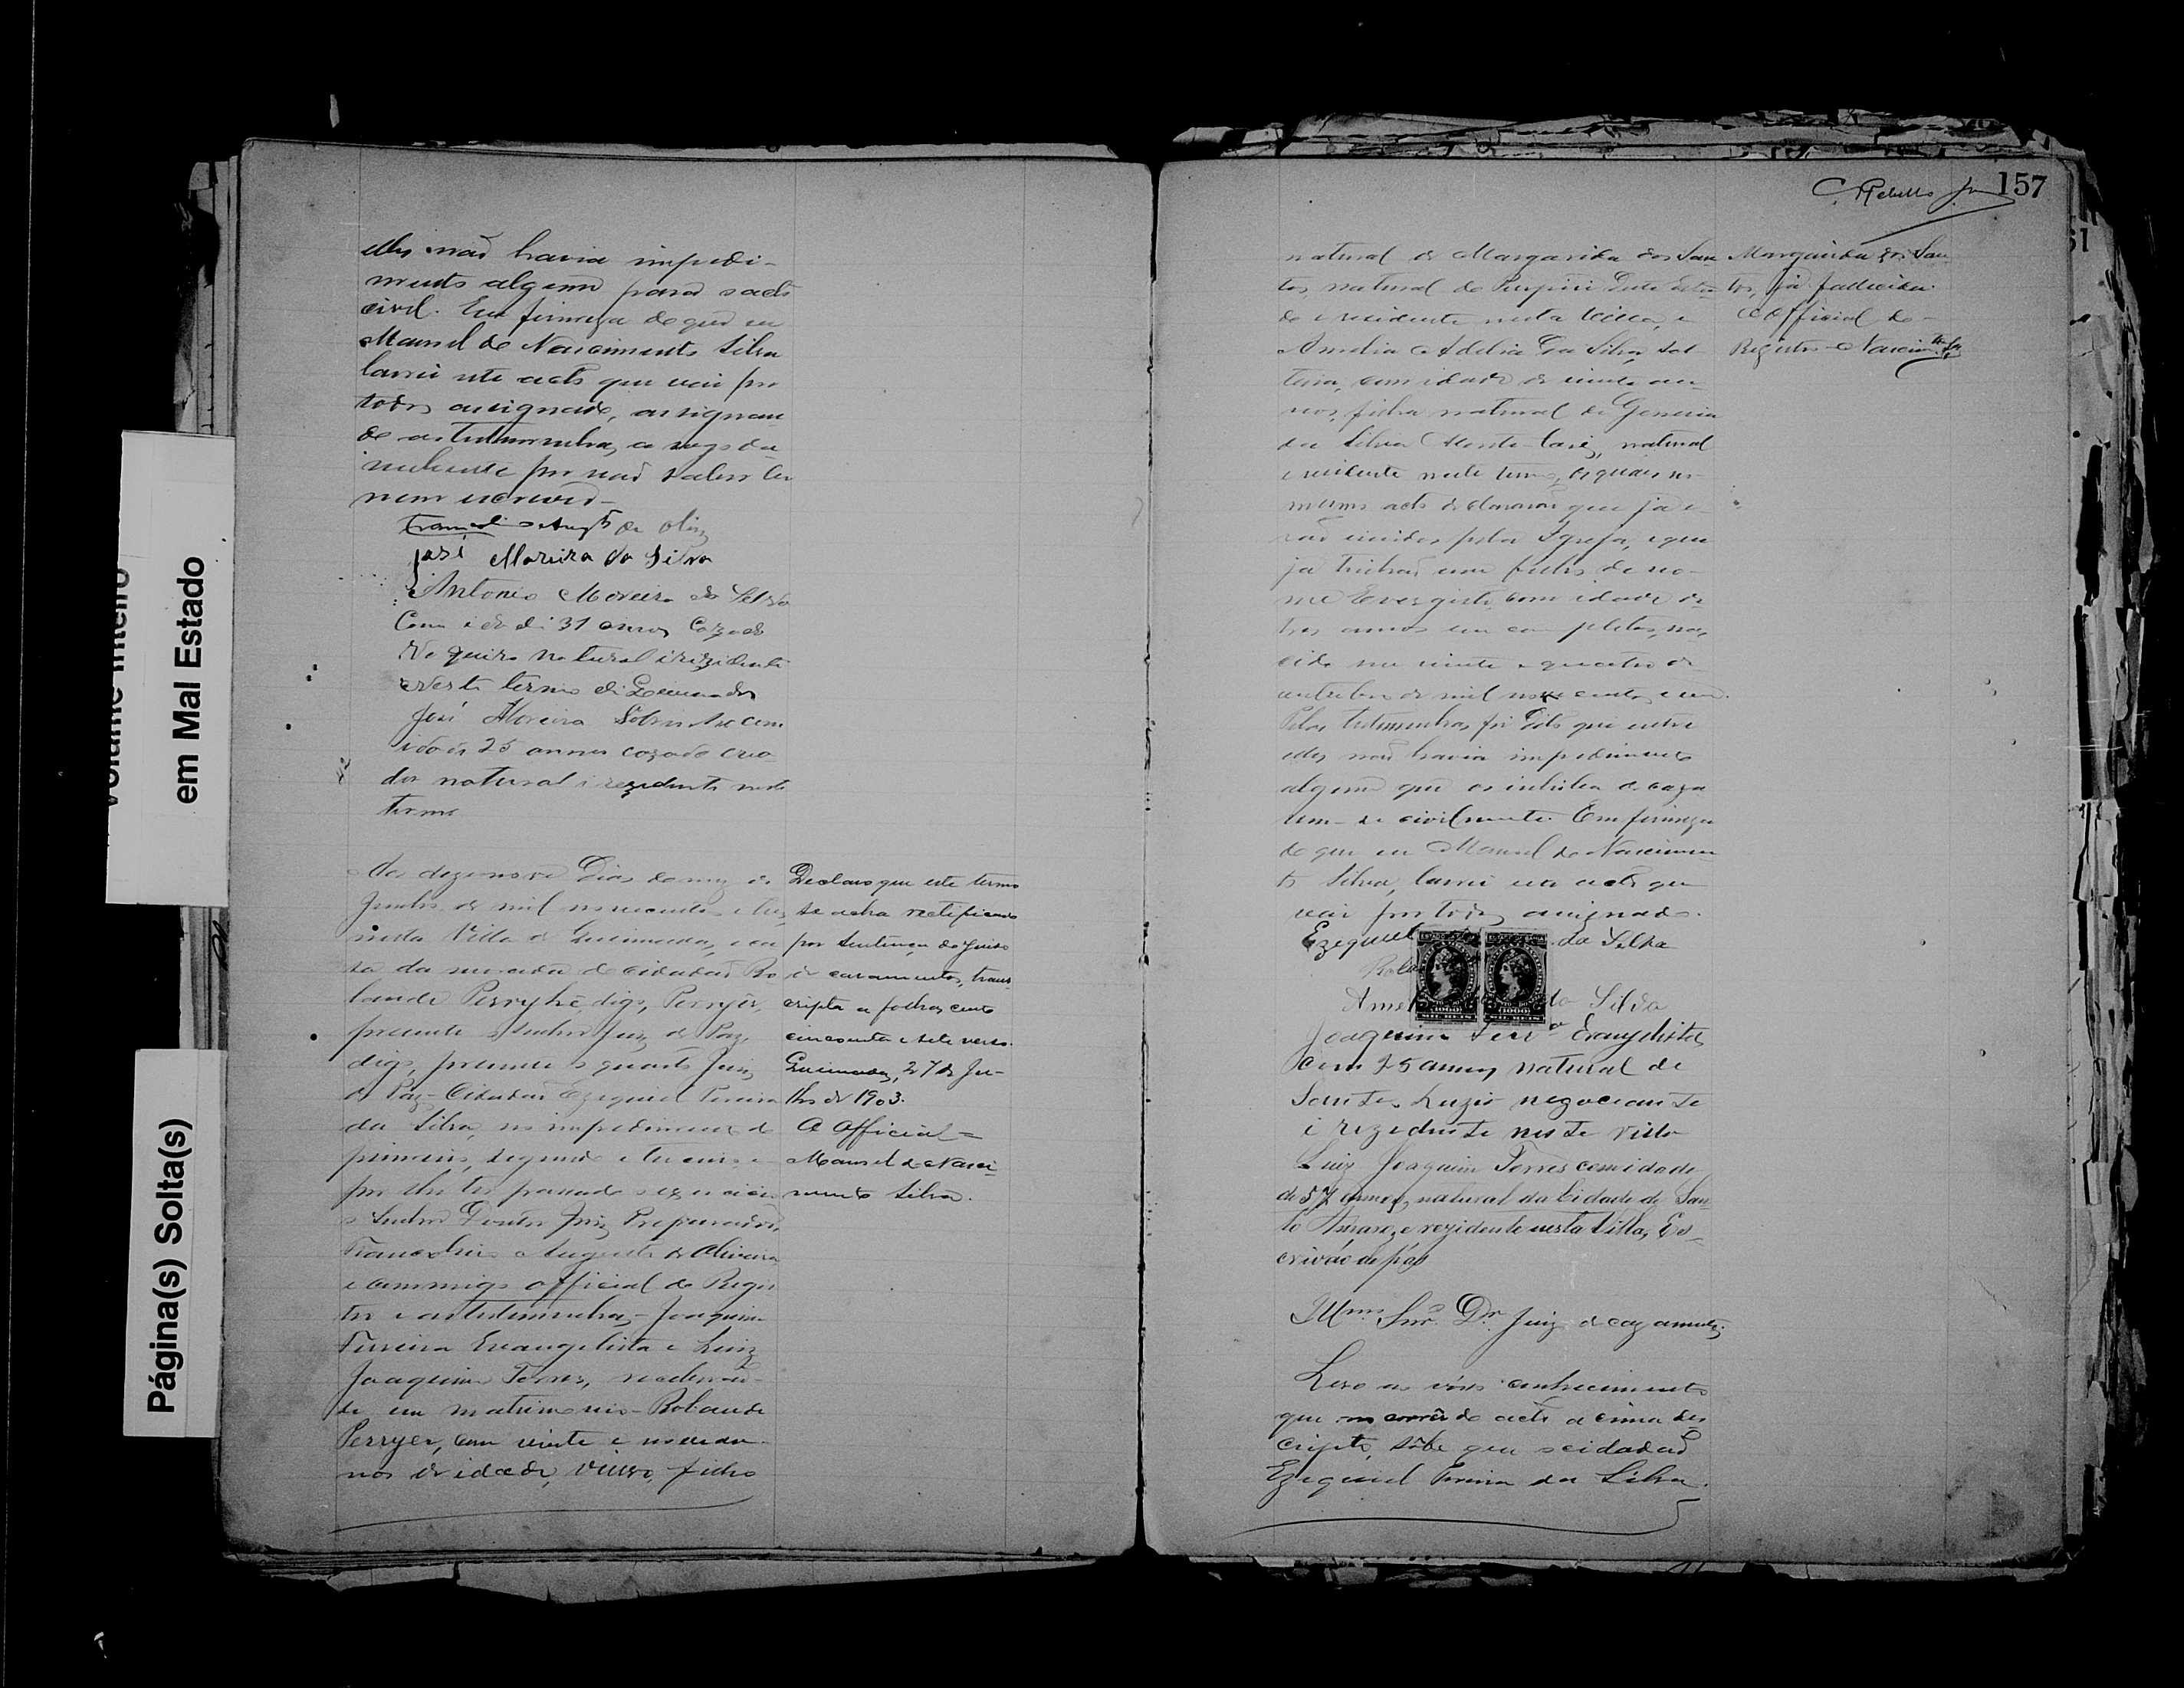 elles não havia impedi-
mento algum para o acto
civil. Em firmeza de que eu
Manoel do Nascimento Silva
lavrei este acto que vai por
todos assignado, assignan
do as testemunhas, a rogo da
nubente por não saber ler
nem escrever-
Francolino Augto de Olivra
José Moreira da Silva
Antonio Moreira da Silva
Com idade 31 annos Cazado
Vaqueiro natural i rezidente
Neste termo di Queimadas
José Moreira Sobrinho com
idade 25 annos cazado cria
dor natural i rezidente neste
termo
Aos dezenove dias do mez de
Junho de mil novecentos e tres,
nesta Villa de Queimadas, e ca
sa da morada do cidadão Ro
lando Perryhê, digo, Perryêr,
presente o Senhor Juiz de Paz,
digo, presente o quarto Juiz
de Paz-Cidadão Ezequiel Pereira
da Silva, no impedimento do
primeiro, segundo e terceiro e
por lhe ter passado o exercicio
o Senhor Doutor Juiz Preparador,
Francolino Augusto de Oliveira
e commigo official do Regis
tro e as testemunhas-Joaquim
Ferreira Evangelista e Luiz
Joaquim Torres, receberão-
se em matrimonio-Rolando
Perryer, com vinte e nove an-
nos de idade, viuvo, filho
Declaro que este termo
se acha rectificado
por Sentença do Juiso
de casamentos, trans
cripta a folhas cento
cincoenta e sete verso.
Queimadas, 27 de Ju-
lho de 1903.
O Official=
Manoel do Nasci
mento Silva.
C. Rebello Jor
157
natural de Margarida dos San
tos, natural de Purpiri deste Esta-
do e residente nesta Villa, e
Amelia Adelia da Silva, sol
teira, com idade de vinte an-
nos, filha natural de Generia
da Silva, natural
e residente neste termo, os quais no
mesmo acto declararão que já e-
rão unidos pela Igreja, e que
já tinhão um filho de no-
me Evergisto, com idade de
tres annos incompletos, nas
cido em vinte e quatro de
outubro de mil novecentos e um.
Pelas testemunhas foi dito que entre
elles não havia impedimento
algum que os inhiba de caza
rem-se civilmente. Em firmeza
de que eu Manoel do Nascimen
to Silva, lavrei este acto que
vai por todos assignado.
Ezequiel da Silva
MIL REIS
1000
MIL REIS
1000
Amel da Silva
Joaquim Ferra Evangelista
com 25 annos natural de
Santa Luzia negociante
i rezidente neste villa
Luiz Joaquim Torres com idade
de 57 annos, natural da Cidade de San
to Amaro, e rezidente nesta Villa, Es-
crivão de paz
Illmo Snr. Dr. Juiz de cazamentos,
Levo ao vosso conhecimento
que no correr do acto acima des
cripto, soube que o cidadão
Ezequiel Pereira da Silva.
Margarida dos San
tos, já fallecida.
O Official do
Registro-Nascimto Sa
Volume Inteiro
em Mal Estado
Página(s) Solta(s)